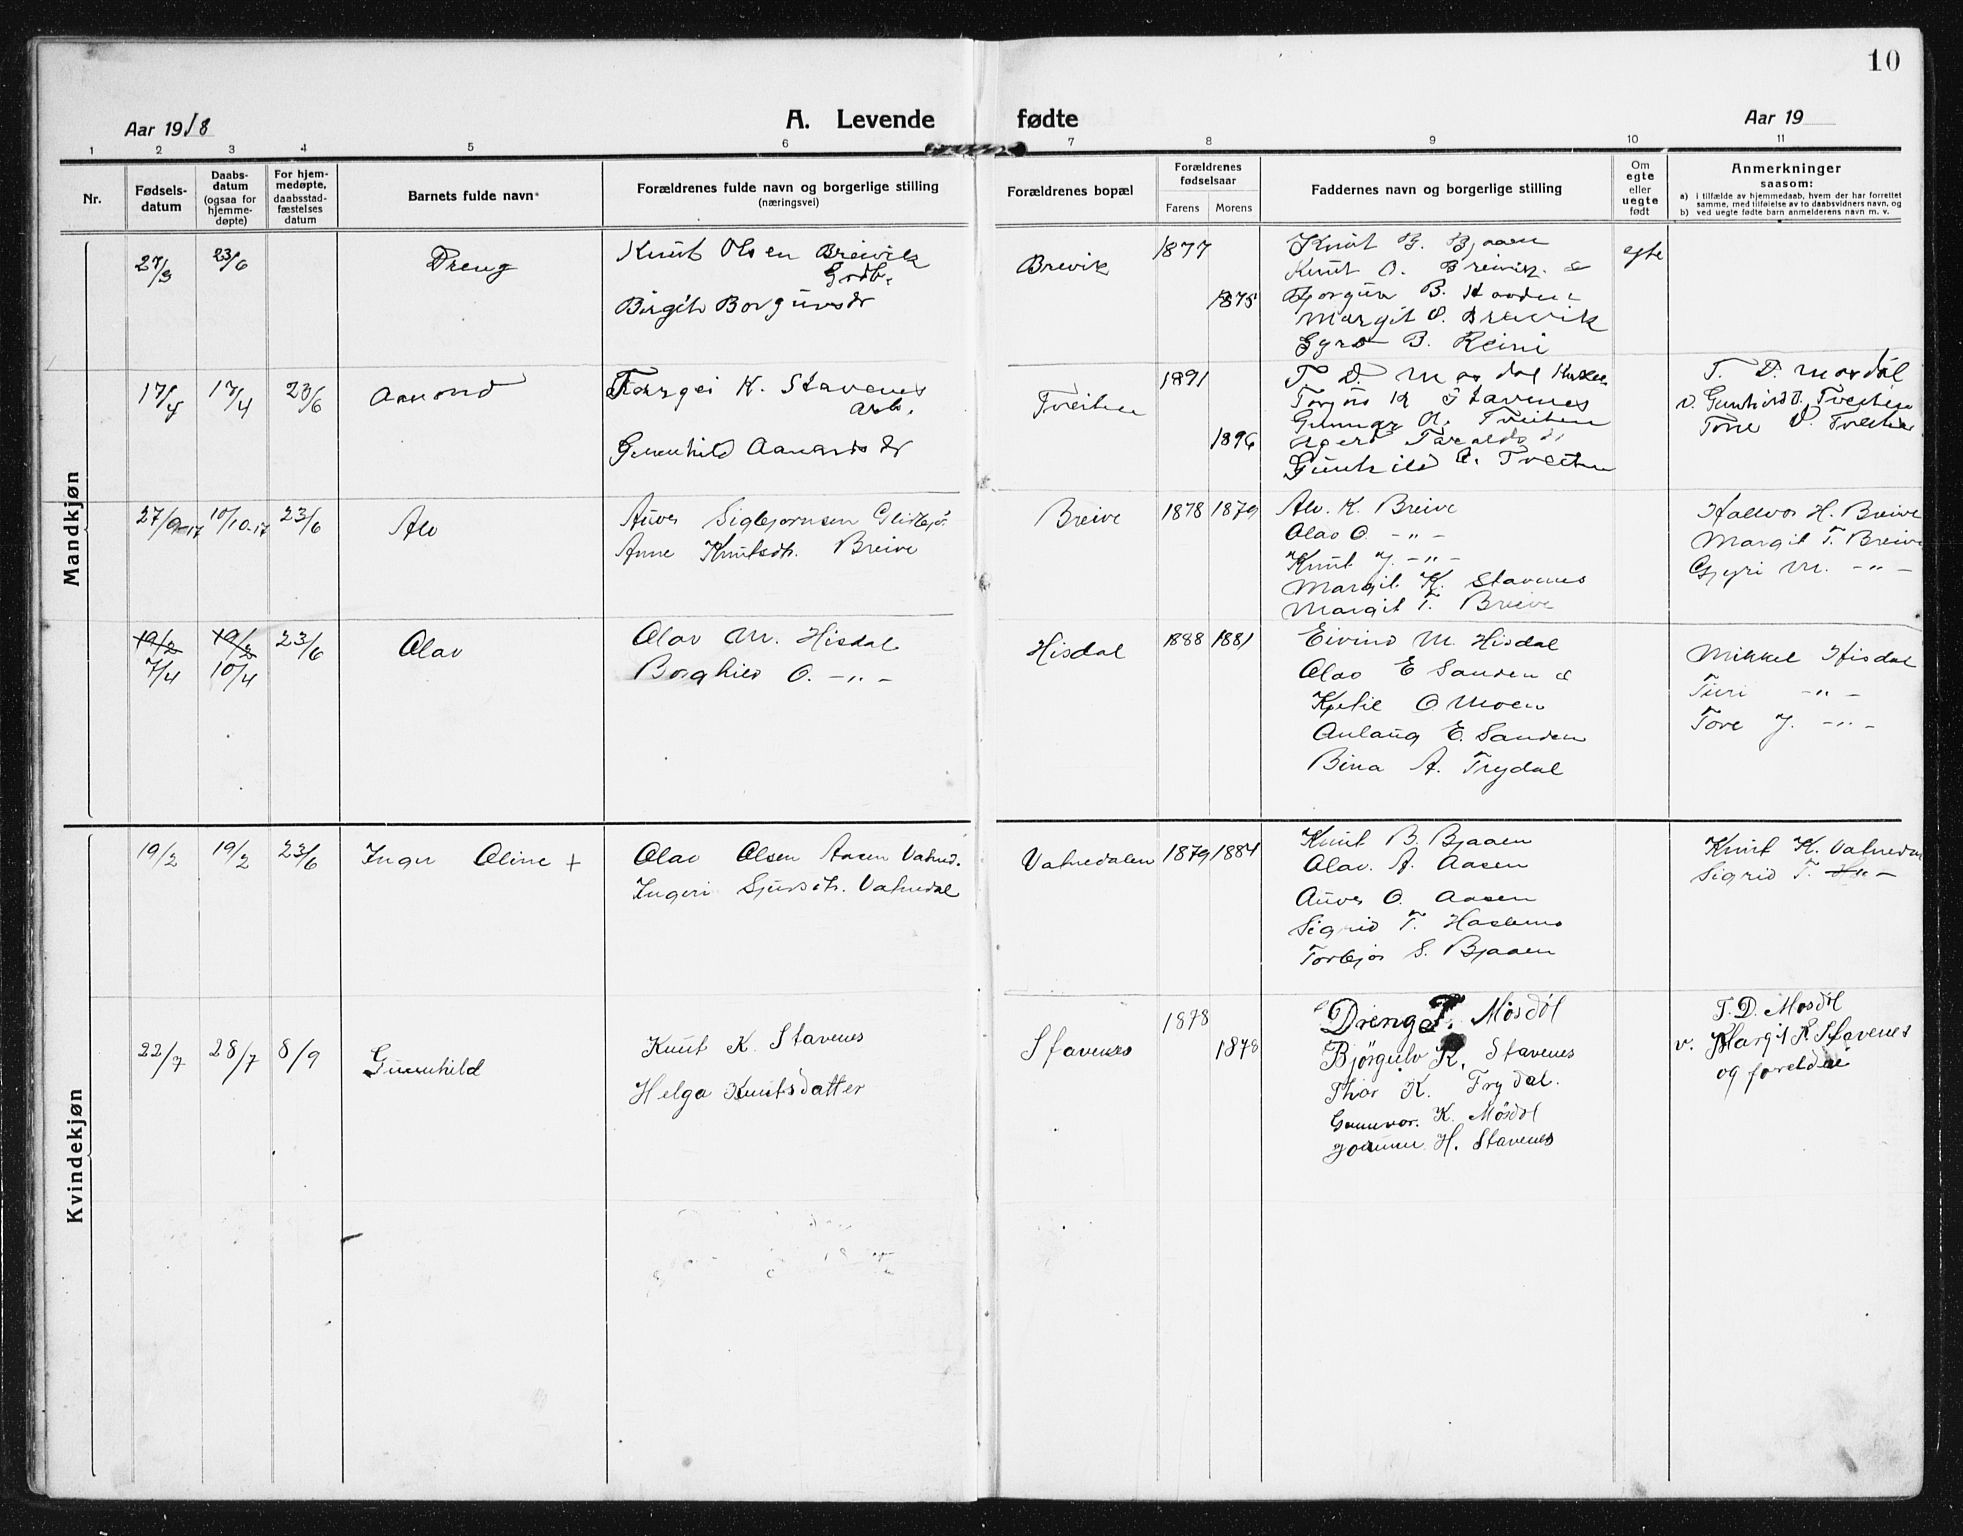 10
Aar 1918
A. Levende fødte
Aar 19
1 2 3 4 5 6 7 8 9 10 11
Nr.
Fødsels-
datum
Daabs-
datum
(ogsaa for
hjemme-
døpte)
For hjem-
medøpte,
daabsstad-
fæstelses
datum
Barnets fulde navn
Forældrenes fulde navn og borgerlige stilling
(næringsvei)
Forældrenes bopæl
Forældrenes
fødselsaar
Farens Morens
Faddernes navn og borgerlige stilling
Om
egte
eller
uegte
født
Anmerkninger
saasom:
a) i tilfælde av hjemmedaab, hvem der har forrettet
samme, med tilføielse av to daabsvidners navn, og
b) ved uegte fødte barn anmelderens navn m. v.
Mandkjøn
27/3 23/6 Dreng
Knut Olsen Breivik
Grdb.
Birgit Borgunsdr
Brevik
1877
1875
Knut B. Bjaaen
Knut O. Breivik &
Borgun B. Hovden
Margit O. Breivik
Gyro B. Reini
egte
17/4 17/4 23/6 Aamond
Targei K. Stavenes
Arb.
Gunnhild Aanonds dr
Tveiten
1891
1896
T. D. Mosdal
Torjus K Stavenes
Gunnar A. Tveiten
Gunhild A. Tveiten
T. D. Mosdøl
v. Gunhild D. Tveiten
Tone D. Tveiten
27/9-17 10/10.17 23/6 Alv
Auver Sigbjørnsen
Anne Knutsdt. Breive
Breive
1878 1879
Alv. K. Breive
Olav O. -"-
Knut J. -"-
Margit K. Stavenes
Margit T. Breive
Hallvor H. Breive
Margit T. Breive
Gyri M. -"-
19/2 19/2 23/6
7/4 10/4
Olav
Olav M. Hisdal
Borghild O. -"-
Hisdal
1888 1881
Eivind M. Hisdal
Olav E Sanden &
Kjetil O Moen
Anlaug E. Sanden
Bina A. Trydal
Mikkel Hisdal
Turi -"-
Tore J. -"-
Kvindekjøn
19/2 19/2 23/6 Inger Oline +
Olav Olsen Aasen Vatned.
Ingeri Sjursdt. Vatnedal
Vatnedalen
1879 1884
Knut B. Bjaaen
Olav. A. Aasen
Auver O. Aasen
Sigrid T. Haslemo
Torbjør S. Bjaaen
Knut K. Vatnedal
Sigrid T. -"-
22/7 28/7 8/9 Gunnhild
Knut K. Stavenes
Helga Knutsdatter
Stavenes
1878
1878
Dreng T. Mosdøl
Bjørgulv K. Stavenes
Thor K. Trydal.
Gunnvor. K. Mosdøl
Jorunn H. Stavenes
T. D. Mosdøl
v. Margit K Stavenes
og foreldre